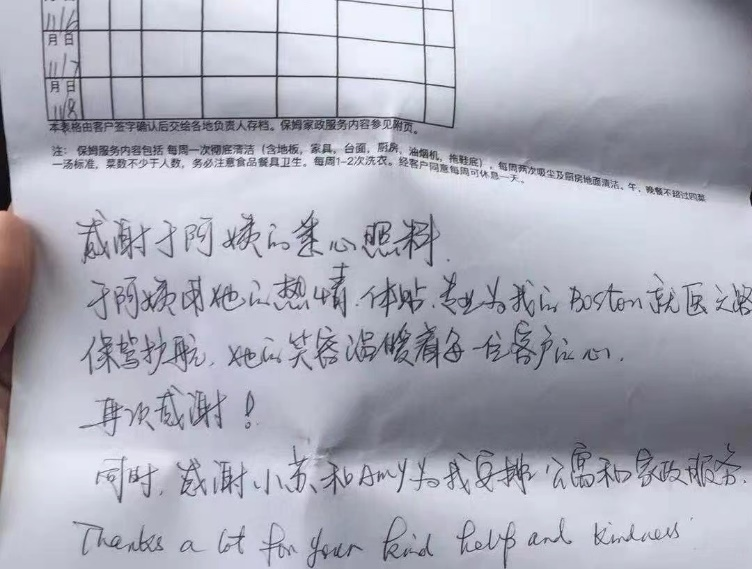 11/6
月 日
11/7
月 日
11/8
本表格由客户签字确认后交给各地负责人存档。保姆家政服务内容参见附页。
注: 保姆服务内容包括 每周一次彻底清洁（含地板，家具，台面，厨房，油烟机，拖鞋底），每周两次吸尘及厨房地面清洁。午，晚餐不超过四菜
一汤标准，菜数不少于人数，务必注意食品餐具卫生。每周1-2次洗衣。经客户同意每周可休息一天。
感谢于阿姨的悉心照料.
于阿姨用她的热情.体贴.专业为我的Boston就医之路
保驾护航,她的笑容温暖着每一位客户的心.
再次感谢!
同时,感谢小苏和Amy为我安排公寓和家政服务.
Thanks a lot for your kind help and kindness